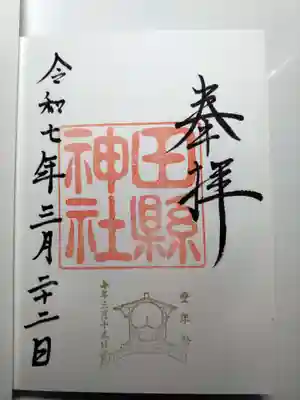 奉拝
田縣
神社
令和七年三月二十二日
豊年祭